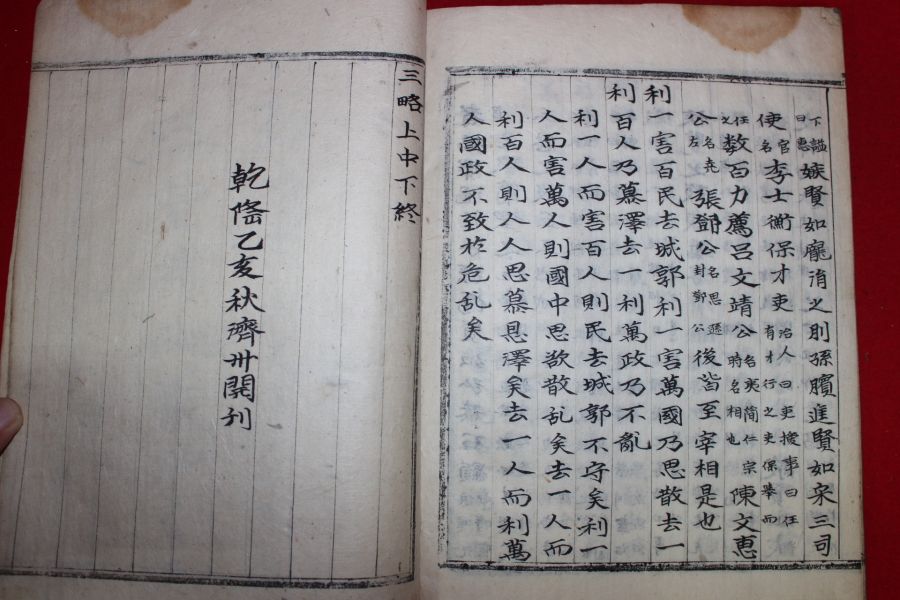 下謚曰惠嫉賢如龐涓之則孫臏進賢如宋三司
使官名李士衡保才吏治人曰吏擾事曰任有才行之吏保舉而
任之数百力薦呂文靖公名夷简仁宗時名相也陳文惠
公名尭左張鄧公名思遜封鄭公後皆至宰相是也
利一害百民去城郭利一害萬國乃思散去一
利百人乃慕澤去一利萬政乃不亂
利一人而害百人則民去城郭不守矣利一
人而害萬人則國中思欲散乱矣去一人而
利百人則人人思慕恩澤矣去一人而利萬
人國政不致於危乱矣
三略上中下終
乾隆乙亥秋濟州開刊